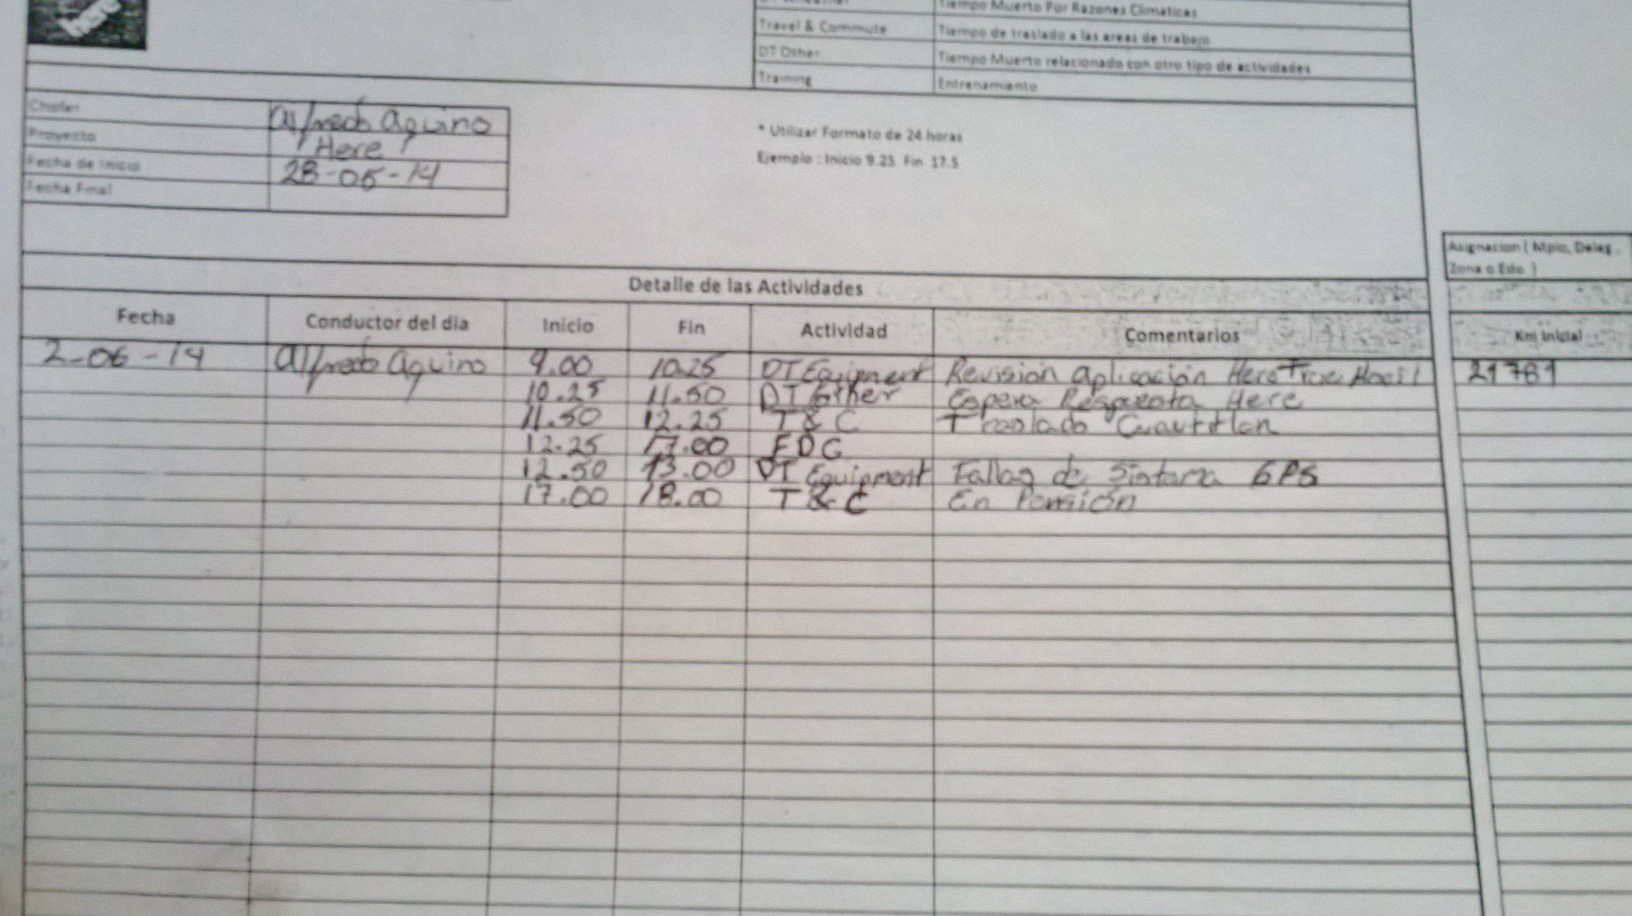 Tiempo Muerto Por Razones Climaticas
Travel & Commute Tiempo de traslado a las areas de trabajo
DT Other Tiempo Muerto relacionado con otro tipo de actividades
Training Entrenamiento
Chofer Alfredo Aquino
Proyecto Here
Fecha de Inicio 28-05-14
Fecha Final
* Utilizar Formato de 24 horas
Ejemplo : Inicio 9.25 Fin 17.5
Asignacion ( Mpio, Deleg.
Zona o Edo. )
Detalle de las Actividades
Fecha Conductor del dia Inicio Fin Actividad Comentarios Km Inicial
2-06-14 Alfredo Aquino 9.00 10.25 DT Equipment Revisión Aplicación Here 21781
10.25 11.50 DT Other Espera Respuesta Here
11.50 12.25 T & C Traslado Cuautitlan
12.25 17.00 FDC
12.50 13.00 DT Equipment Fallas de GPS
17.00 18.00 T & C En Pensión